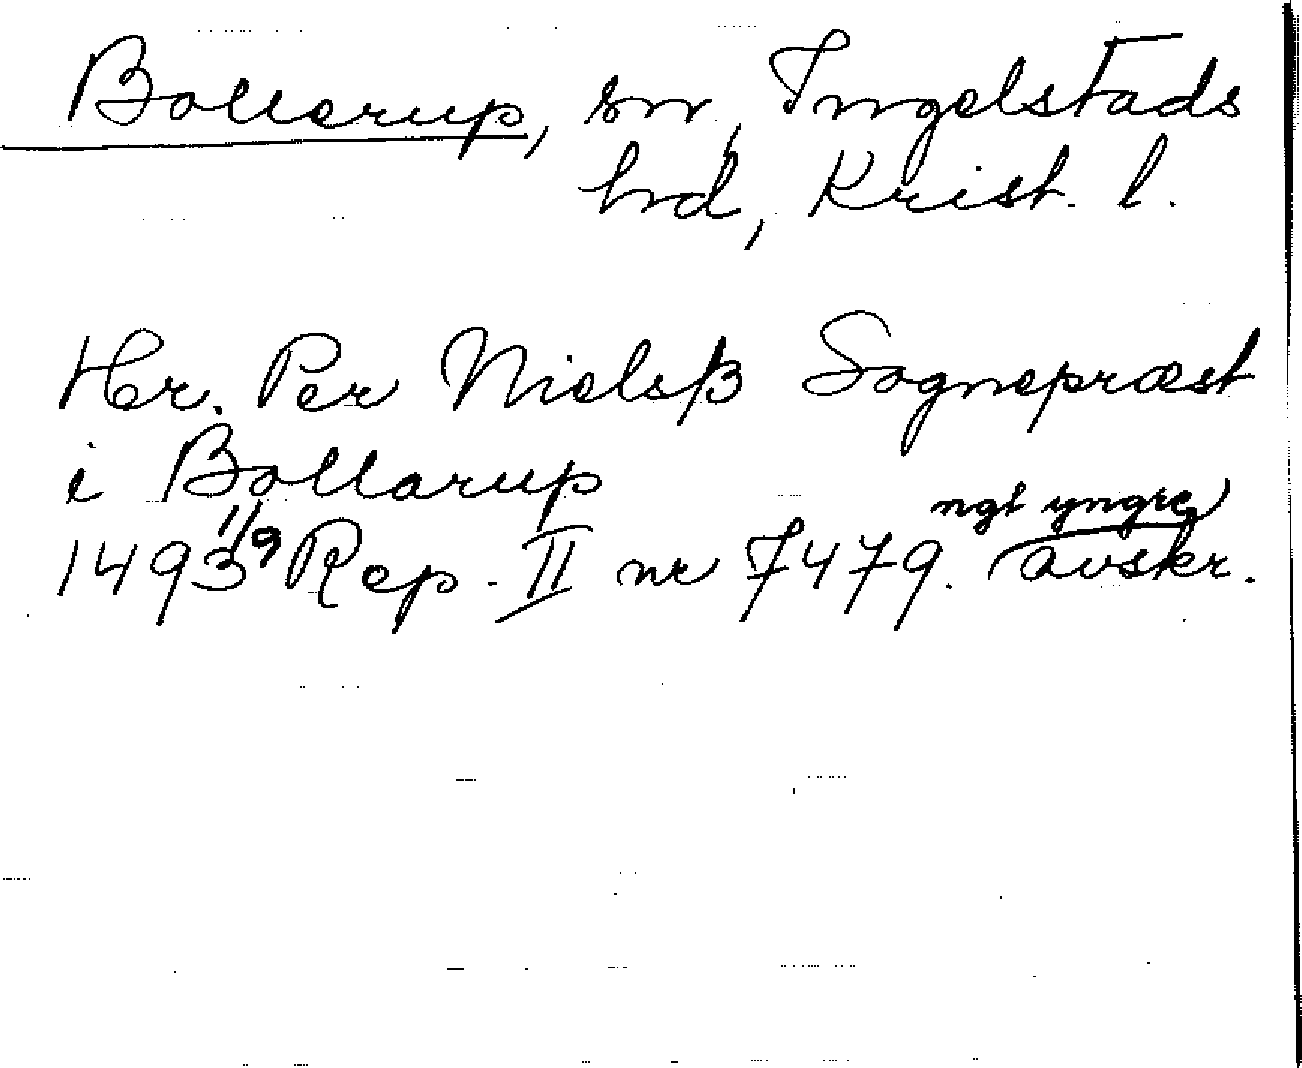 Bollerup, sn, Ingelstads
hd, Krist. l.
Her. Per Nielsß Sognepræst
i Bollarup
1493 1/9 Rep. II nr 7479. ngt yngre avskr.